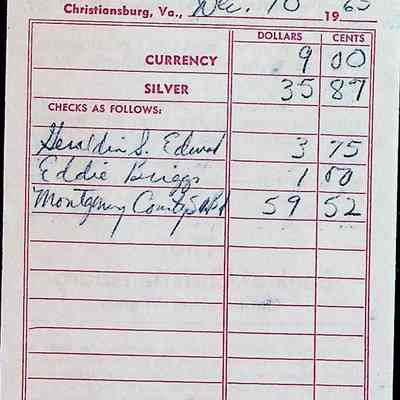 Christiansburg, Va., Dec. 10 1965
DOLLARS CENTS
CURRENCY 9 00
SILVER 35 87
CHECKS AS FOLLOWS:
Geraldin S. Edward 3 75
Eddie Briggs 1 50
Montgomery County 59 52